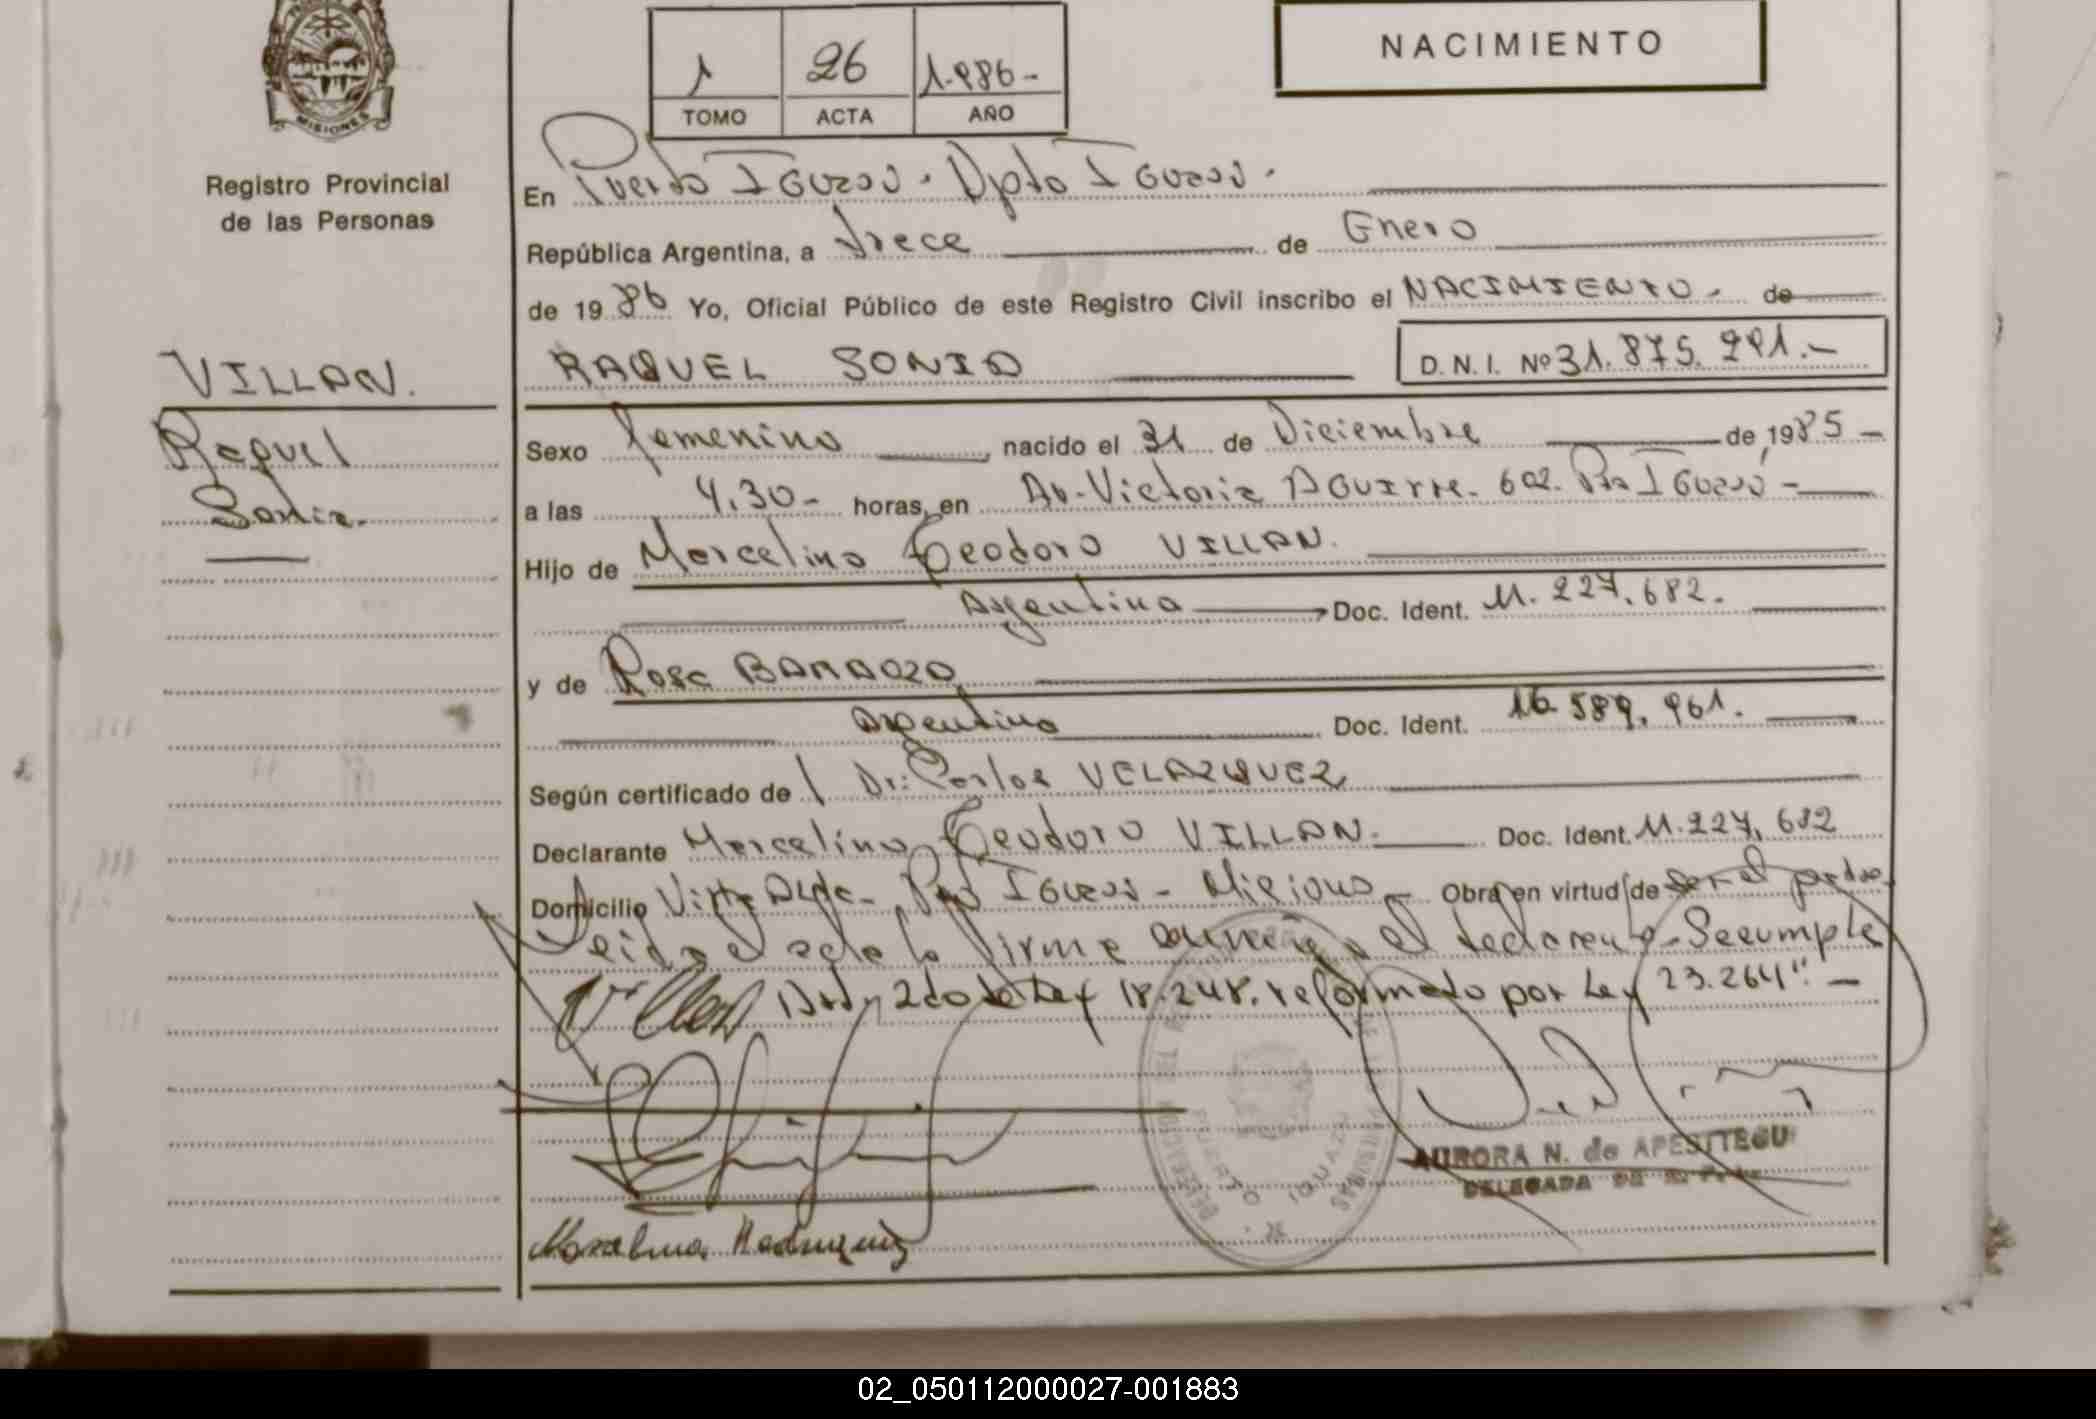 1 26 1.986-
TOMO ACTA AÑO
NACIMIENTO
MISIONES
Registro Provincial
de las Personas
En Puerto IGUAZU. Dpto IGUAZU.
República Argentina, a trece de Enero
de 1986 Yo, Oficial Público de este Registro Civil inscribo el NACIMIENTO- de
RAQUEL SONIA D.N.I. Nº 31.875.291.-
VILLAN.
Raquel
Sonia.
Sexo femenino nacido el 31 de Diciembre de 1985-
a las 4.30- horas, en Av. Victoria AGUIrre. 602. Pto IGUAZÚ-
Hijo de Marcelino Teodoro VILLAN.
Argentina Doc. Ident. M. 227.682.
y de Rosa BARBOZA
Argentina Doc. Ident. 16.589.961.
Según certificado de Dr: Carlos VELAZQUEZ
Declarante Marcelino Teodoro VILLAN. Doc. Ident. M.227.682
Domicilio Villa Alta- Pto IGUAZU- Misiones- Obra en virtud de ser el padre.
Leida el acta la firma conmigo el declarante-Se cumple
Art 2do de Ley 18.248. reformado por Ley 23.264".-
DELEGACION DEL REGISTRO DE LAS PERSONAS
PUERTO IGUAZU
AURORA N. de APESTTEGUI
DELEGADA DE R. P.
02_050112000027-001883